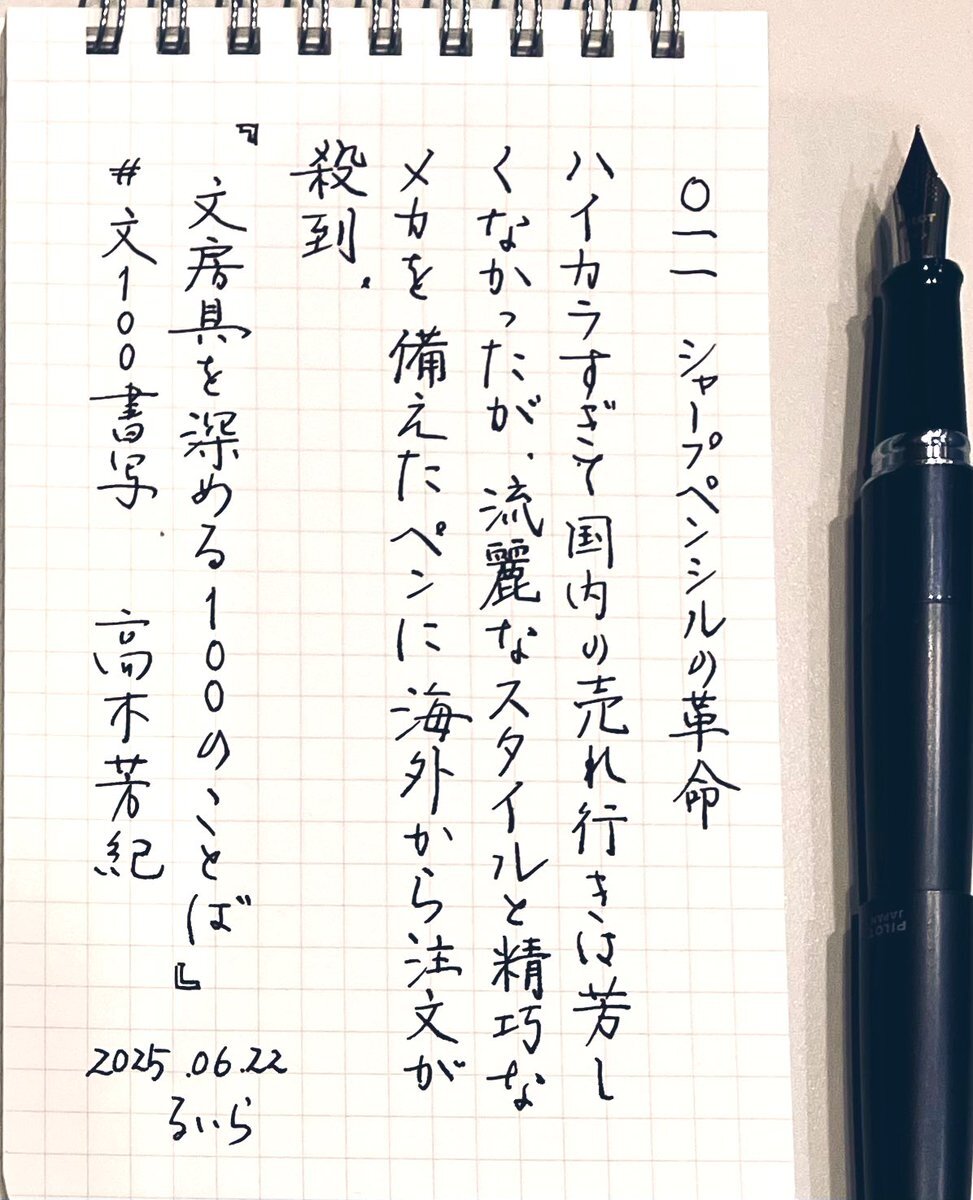 〇一一 シャープペンシルの革命
ハイカラすぎて国内の売れ行きは芳し
くなかったが、流麗なスタイルと精巧な
メカを備えたペンに海外から注文が
殺到。
『文房具を深める100のことば』
#文100書写 高木芳紀
2025.06.22
るいら
PILOT
PILOT
JAPAN